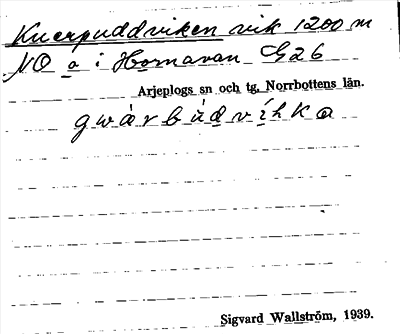 Kuerpuddviken vik 1200 m
NO a i Hornavan G26
Arjeplogs sn och tg, Norrbottens län.
gwàrbùdvíhka
Sigvard Wallström, 1939.